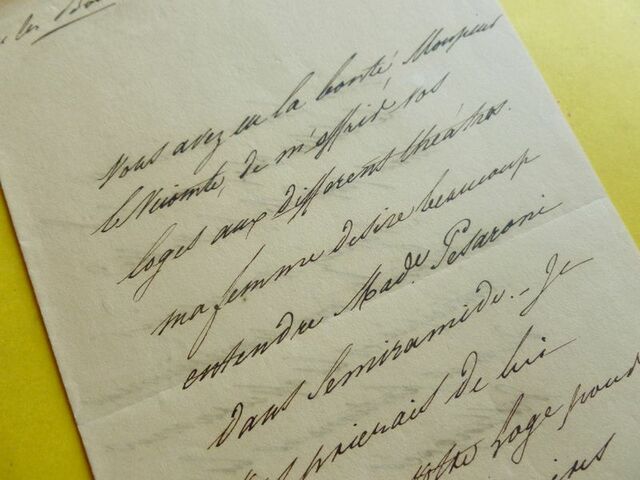 les
Vous avez eu la bonté, Monsieur
le Vicomte, de m'offrir vos
loges aux différent théatres.
ma femme desire beaucoup
entendre Made. Pesaroni
dans Semiramide. - Je
prierais de lui
votre loge pour